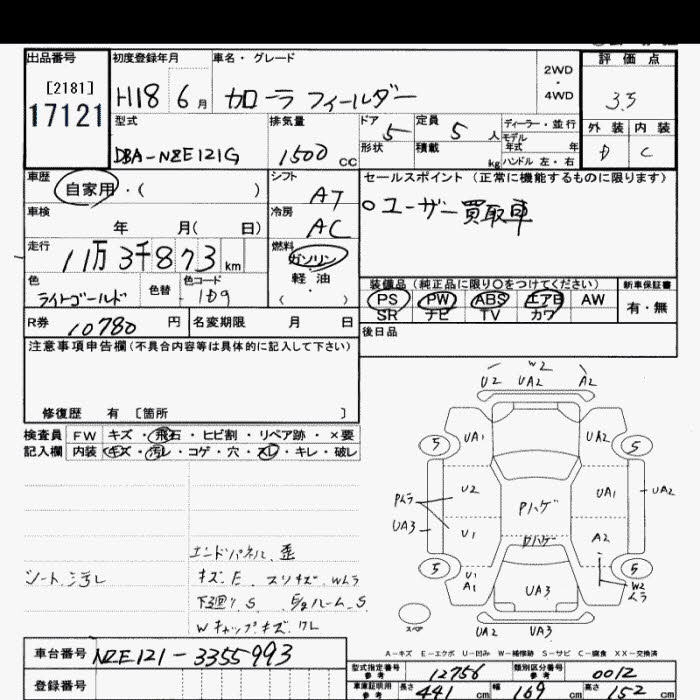 出品番号 初度登録年月 車名・グレード 2WD・4WD 評価点
[2181]
17121 H18 6月 カローラ フィールダー 3.5
型式 排気量 ドア 5 定員 5人 ディーラー・並行 外装 内装
モデル年式 年
DBA-NZE121G 1500cc 形状 積載 kg ハンドル 左・右 D C
車歴 自家用・( ) シフト AT セールスポイント (正常に機能するものに限ります)
車検 年 月( 日) 冷房 AC ○ユーザー買取車
走行 11万3千873km 燃料 ガソリン
軽油
( )
色 ライトゴールド 色替 色コード 装備品 (純正品に限り○をつけてください) 新車保証書
PS PW ABS エアB AW 有・無
SR ナビ TV カワ
R券 10780円 名変期限 月 日 後日品
注意事項申告欄(不具合内容等は具体的に記入して下さい)
修復歴 有 [箇所 ]
検査員 FW キズ・飛石・ヒビ割・リペア跡・×要
記入欄 内装 キズ・汚レ・コゲ・穴・スレ・キレ・破レ
W2
U2 UA2 A2
5 UA1 UA2 5
U2 UA1 UA2
Pムラ Pハゲ
UA3 U1 Pハゲ A2
5 U1 A1 UA3 W2 ムラ 5
スペア UA2 UA3
シート汚レ
エンドパネル歪
キズ.E. スリキズ. Wムラ
下廻り S. E/gルーム.S.
Wキャップキズ.ワレ
A-キズ E-エクボ U-凹み W-補修跡 S-サビ C-腐食 XX-交換済
車台番号 NZE121-3355993
登録番号
型式指定番号 参考 12756 類別区分番号 参考 0012
車庫証明用 参考 長さ 441cm 幅 169cm 高さ 152cm